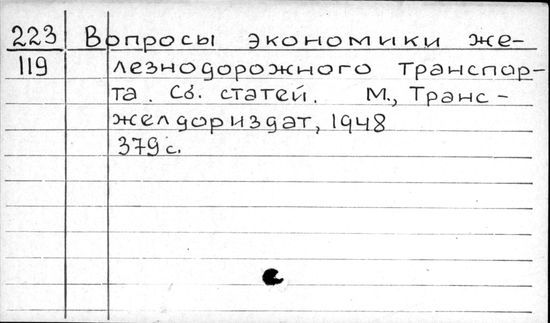 223 Вопросы экономики же-
119 лезнодорожного транспор-
та. Сб. статей. М., Транс-
желдориздат, 1948
379 с.